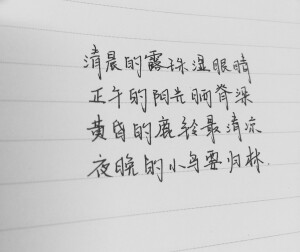 清晨的露珠湿眼睛
正午的阳光晒脊梁
黄昏的鹿铃最清凉
夜晚的小鸟要归林